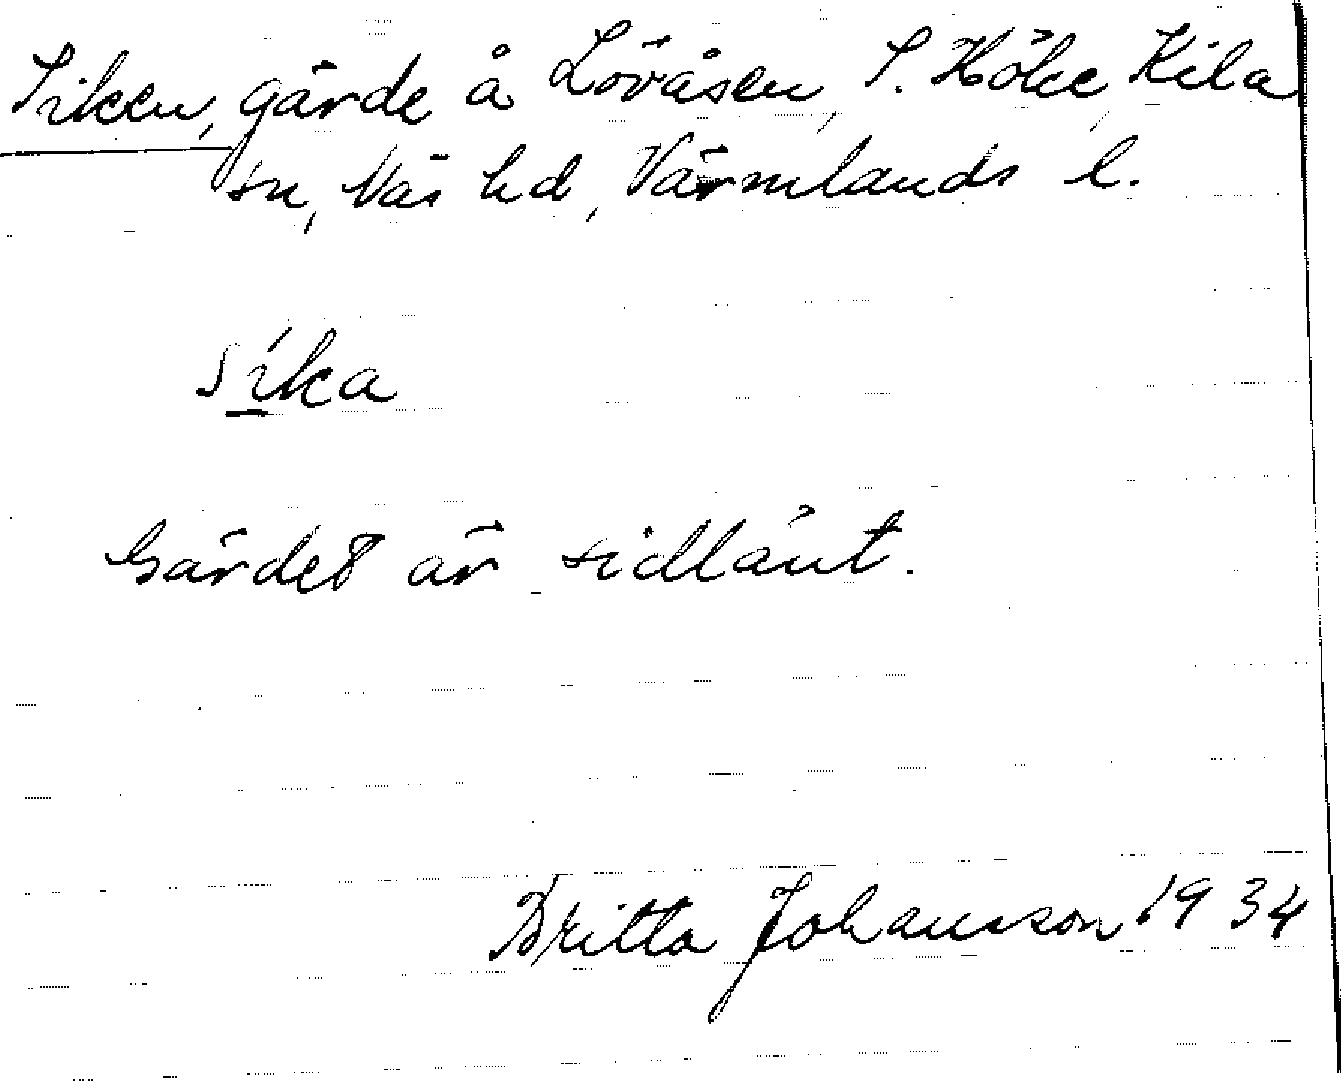 Siken, gärde å Lövåsen, S. Höke, Kila
sn, Näs hd, Värmlands l.
síka
Gärdet är sidlänt.
Britta Johansson 1934